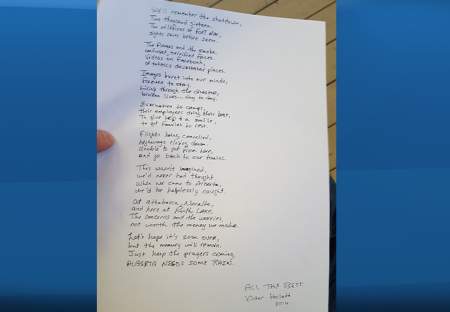 We'll remember the shutdown,
Two thousand sixteen.
The wildfires of Fort Mac,
sights never before seen.
The flames and the smoke
confused, terrified faces.
Videos on Facebook,
of towns devastated places.
Images burnt into our minds,
Forever to stay.
Living through the disaster,
broken lives... day to day.
Evacuation to camps,
their employees doing their best,
To give help & a smile,
to get families to rest.
Flights being cancelled,
businesses closing down.
Unable to get from here,
and go back to our families.
This wasn't imagined,
we'd never had thought
When we came to Alberta,
We'd be helplessly caught.
At Athabasca, Noralta,
and here at Ruth Lake.
The concerns and the worries,
not worth the money we make.
Let's hope it's soon over,
but the memory will remain.
Just keep the prayers coming,
ALBERTA NEEDS SOME RAIN.
ALL THE BEST
2016